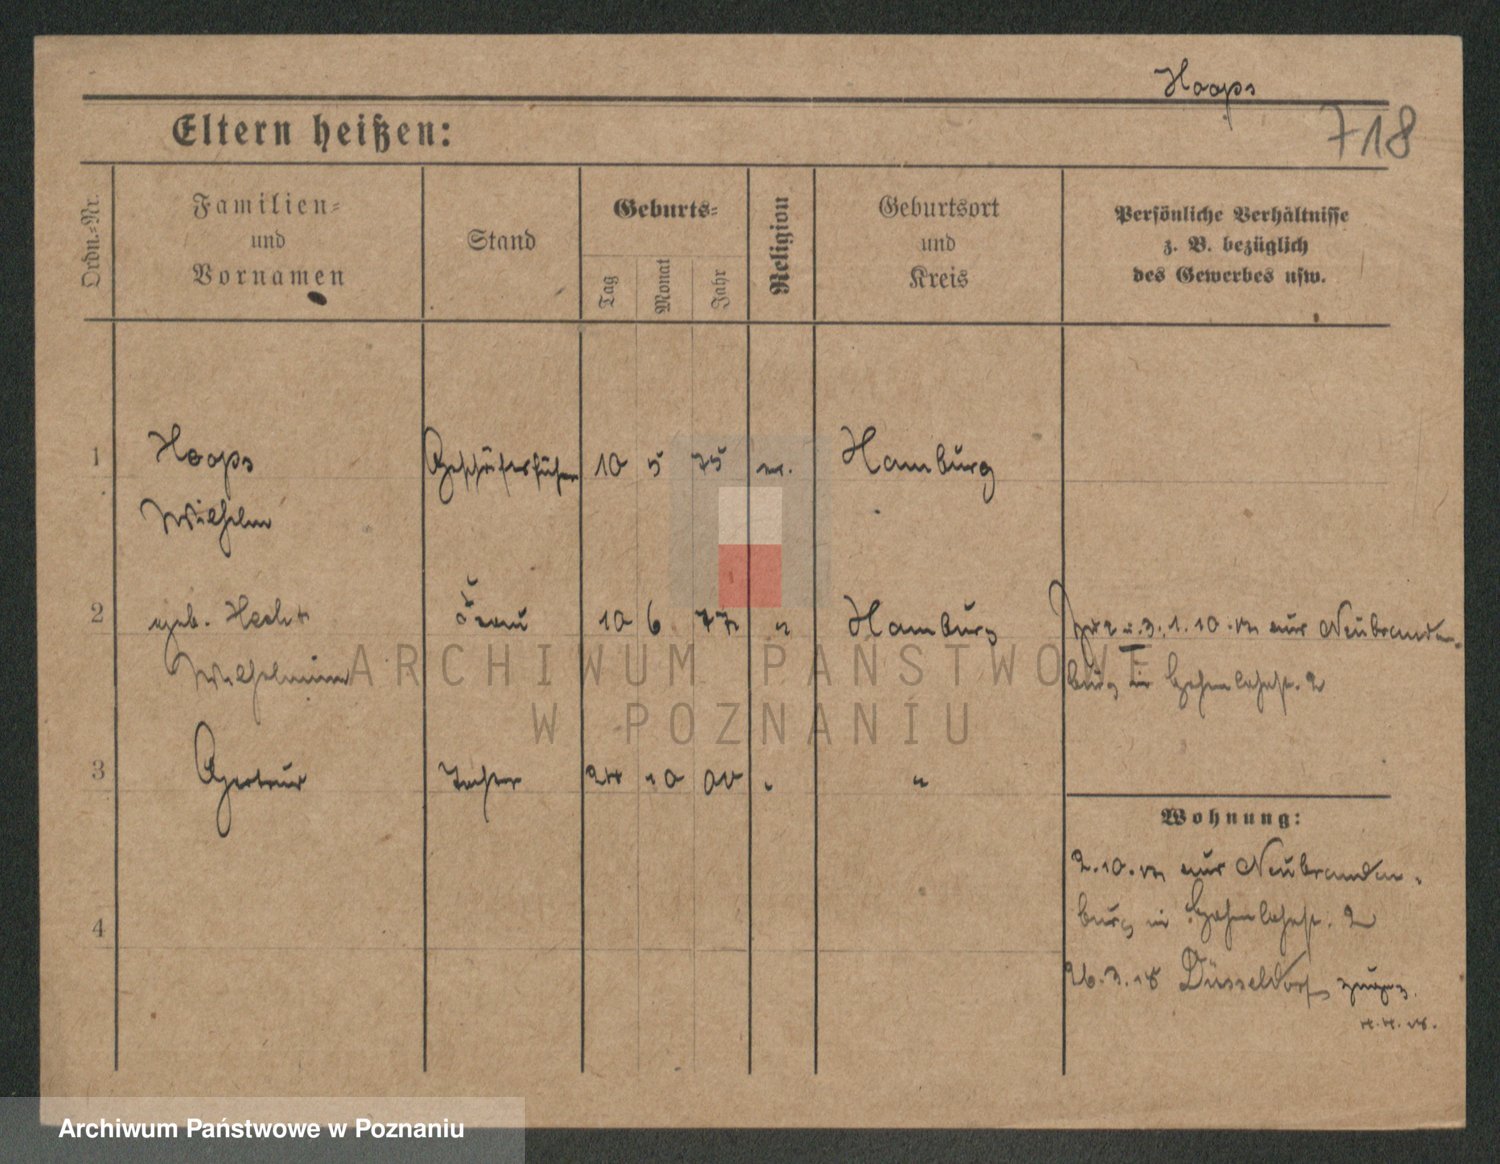 Hoops
Eltern heißen:
718
Ordn.=Nr.
Familien=
und
Vornamen
Stand
Geburts=
Tag
Monat
Jahr
Religion
Geburtsort
und
Kreis
Persönliche Verhältnisse
z. B. bezüglich
des Gewerbes usw.
1 Hoops Geschäftsführer 10 5 75 ev. Hamburg
Wilhelm
2 geb. Hecht Frau 10 6 77 " Hamburg
Wilhelmine
zu 2 u. 3. 1.10. aus Neubranden
burg in
3 Gertrud Tochter 24 10 00 " "
Wohnung:
2.10. aus Neubranden
burg in
4
26.3.18 Düsseldorf
ARCHIWUM PAŃSTWOWE
W POZNANIU
Archiwum Państwowe w Poznaniu